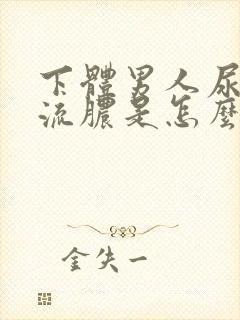 下體男人尿
流膿是怎麼
金失一